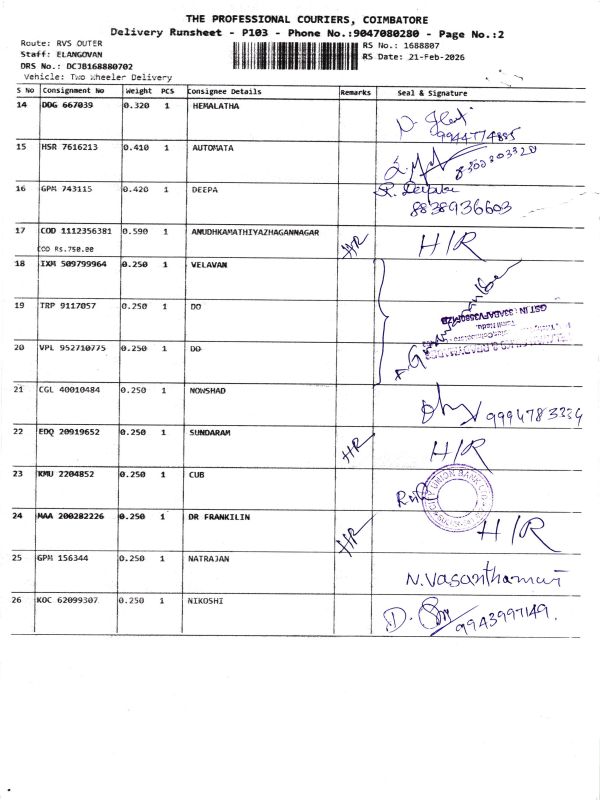 THE PROFESSIONAL COURIERS, COIMBATORE
Delivery Runsheet - P103 - Phone No.:9047080280 - Page No.:2
Route: RVS OUTER
RS No.: 1688807
Staff: ELANGOVAN
RS Date: 21-Feb-2026
DRS No.: DCJB168880702
Vehicle: Two Wheeler Delivery
S No Consignment No Weight PCS Consignee Details Remarks Seal & Signature
14 DDG 667039 0.320 1 HEMALATHA
9944774885
15 HSR 7616213 0.410 1 AUTOMATA
16 GPM 743115 0.420 1 DEEPA R. Deepika
8838936603
17 COD 1112356381 0.590 1 ANUDHKAMATHIYAZHAGANNAGAR HR H/R
COD Rs.750.00
18 IXM 509799964 0.250 1 VELAVAN
19 TRP 9117057 0.250 1 DO
20 VPL 952710775 0.250 1 DO
Tamil Nadu
21 CGL 40010484 0.250 1 NOWSHAD 9994783334
22 EDQ 20919652 0.250 1 SUNDARAM HR H/R
23 KMU 2204852 0.250 1 CUB
CITY UNION BANK LTD
24 MAA 200282226 0.250 1 DR FRANKILIN HR H/R
25 GPM 156344 0.250 1 NATRAJAN N.Vasanthamani
26 KOC 62099307 0.250 1 NIKOSHI D.
9943997149